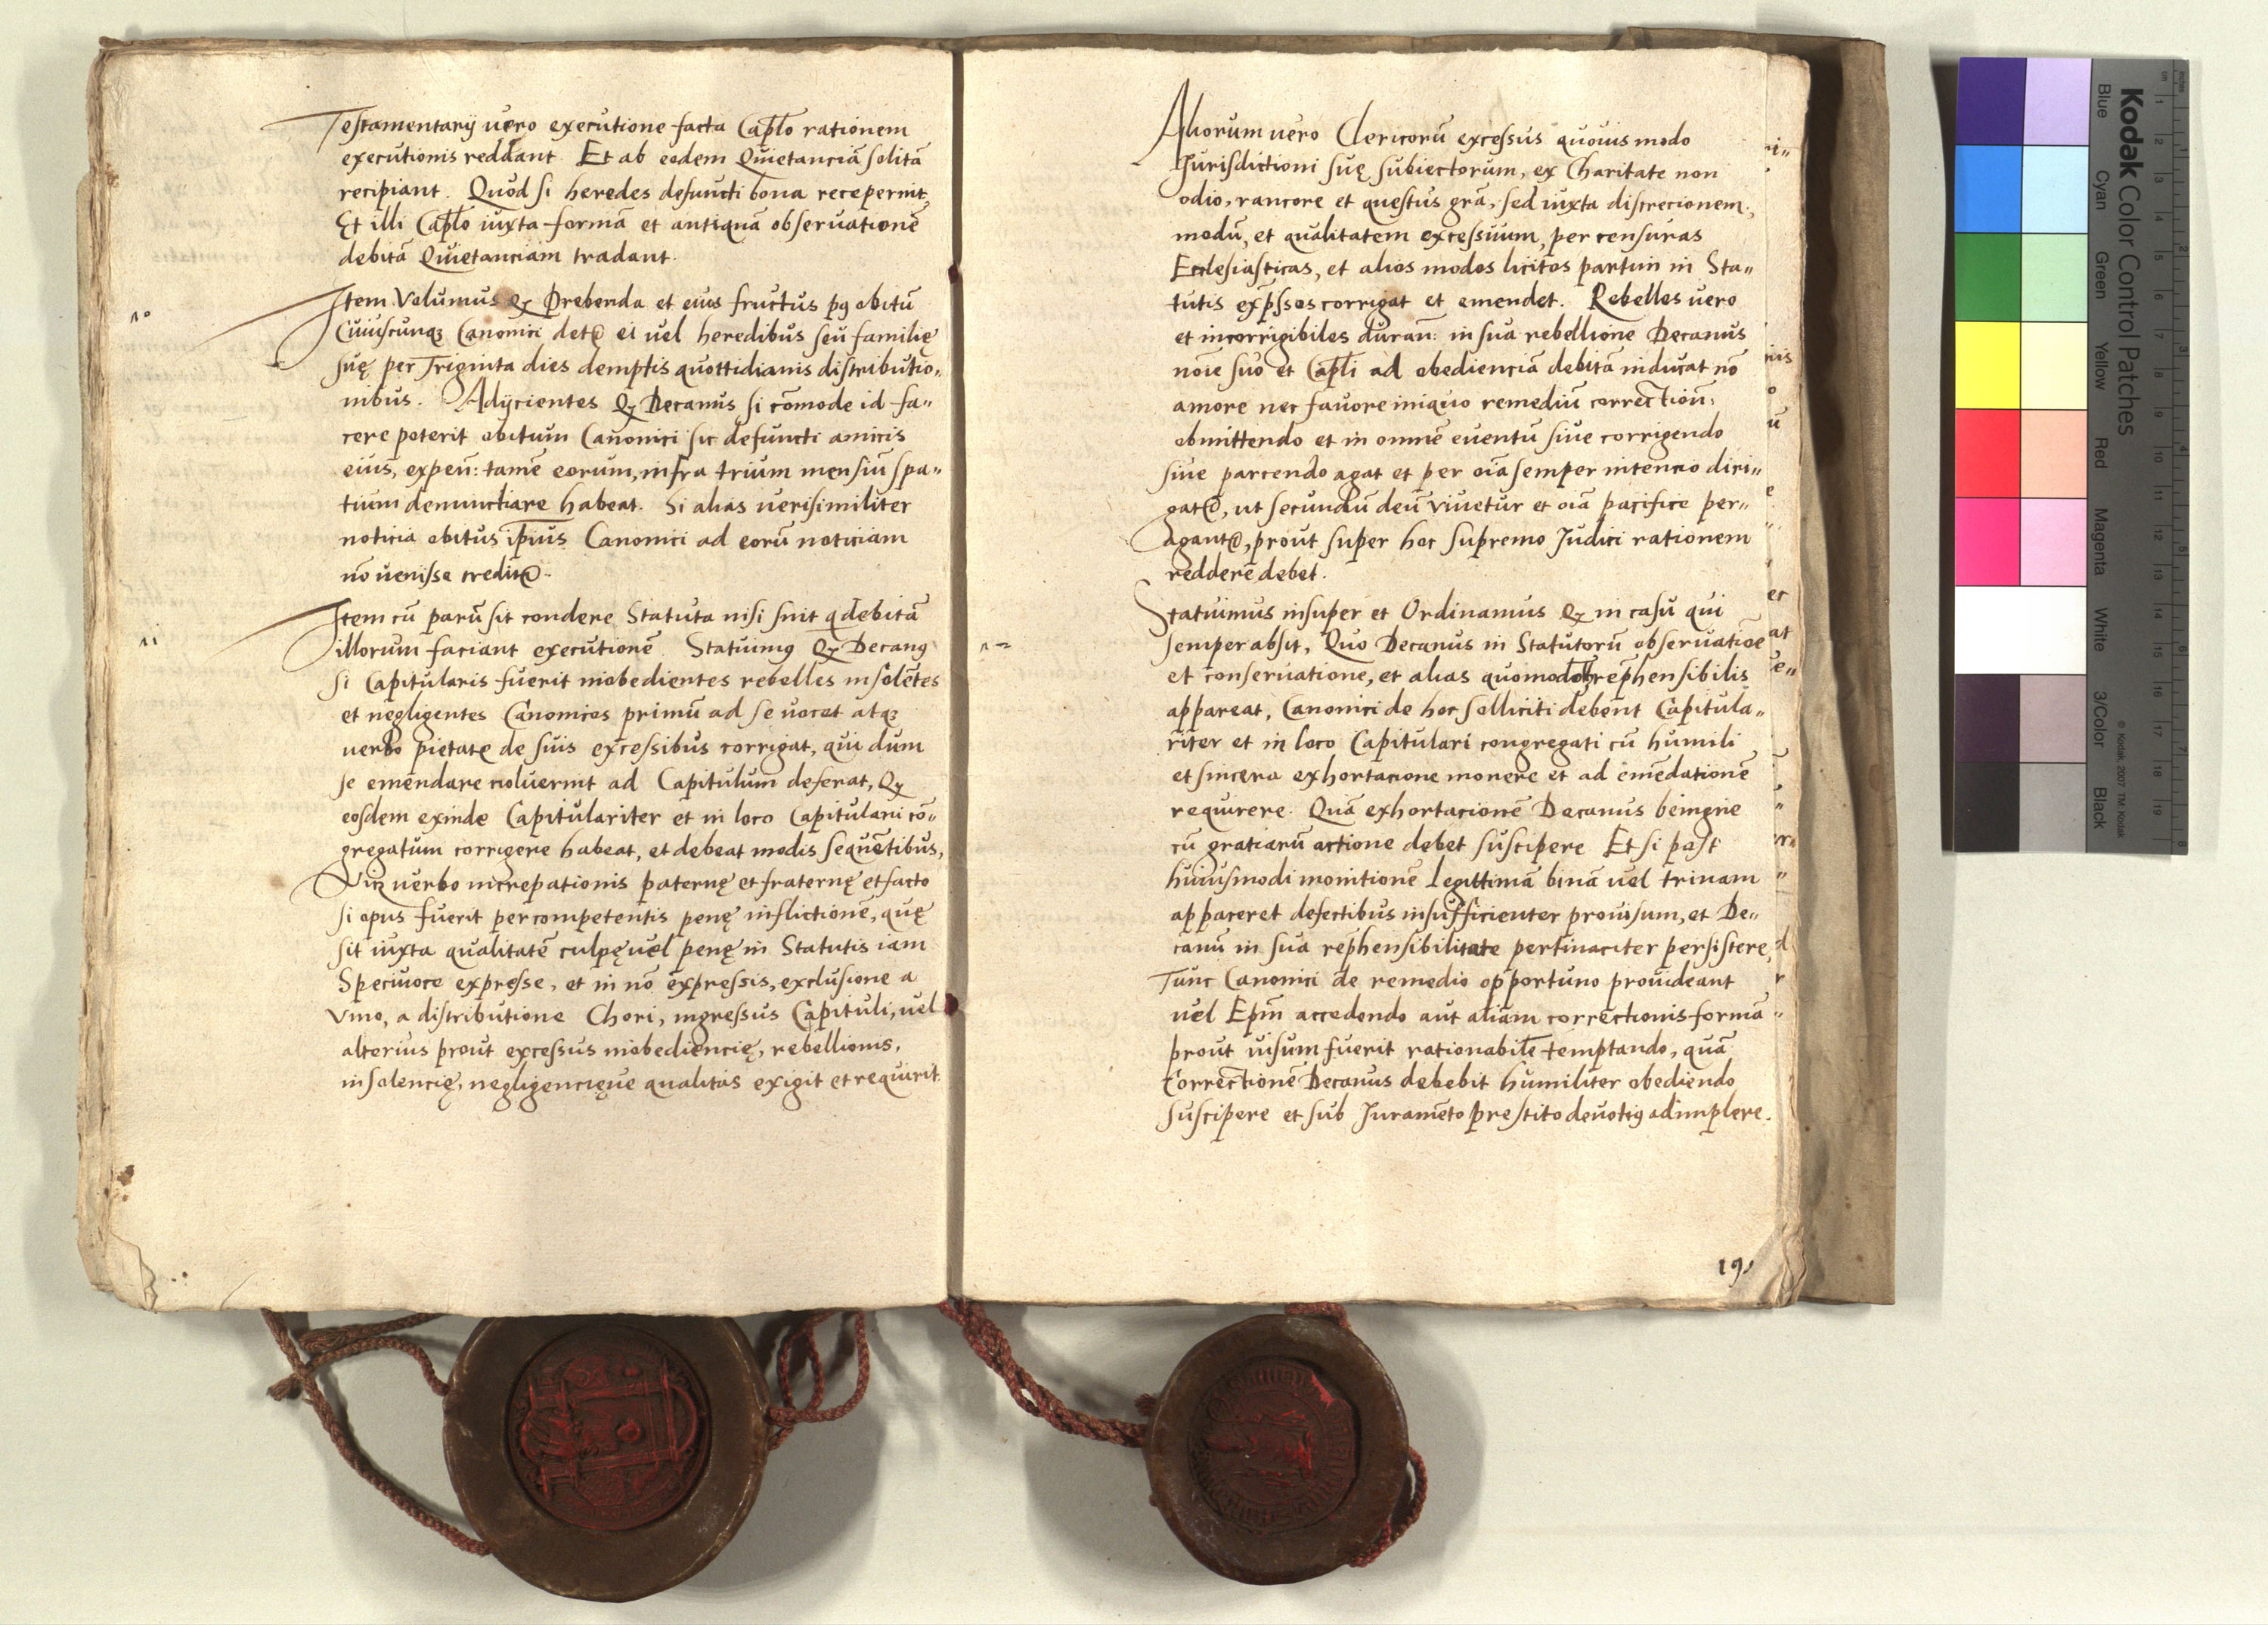 Testamentarij uero executione facta Caplo rationem
executionis reddant. Et ab eodem Quietanciā solitā
recipiant. Quod si heredes defuncti bona receperint,
Et illi Caplo iuxta formā et antiquā obseruationē
debitā Quietanciam tradant.
10
Item Volumus qȝ Prebenda et eius fructus pꝰ obitū
Cuiuscunqȝ Canonici detr ei uel heredibus seu familię
suę per Triginta dies demptis quottidianis distributio„
nibus. Adijcientes Qȝ Decanus si cōmode id fa„
cere poterit obitum Canonici sic defuncti amicis
eius, expen: tamē eorum, infra trium mensiū spa„
tium denunctiare habeat. Si alias uerisimiliter
noticia obitus ipius Canonici ad eorū noticiam
nō uenisse creditr.
11
Item cū parū sit condere Statuta nisi sint q debitā
illorum faciant executionē. Statuimꝰ Qȝ Decanꝰ
si Capitularis fuerit inobedientes rebelles insolētes
et negligentes Canonicos primū ad se uocet atqȝ
uerbo pietate de suis excessibus corrigat, qui dum
se emendare noluerint ad Capitulum deferat, Qȝ
eosdem exinde Capitulariter et in loco Capitulari cō„
gregatum corrigere habeat, et debeat modis sequētibus,
Vicȝ uerbo increpationis paternę et fraternę et facto
si opus fuerit per competentis penę inflictionē, quę
sit iuxta qualitatē culpę uel penę in Statutis iam
Speciuoce expresse, et in nō expressis, exclusione a
Vino, a distributione Chori, ingressus Capituli, uel
alterius prout excessus inobediencię, rebellionis,
insolencię, negligencięue qualitas exigit et requirit.
Aliorum uero Clericorū excessus quouis modo
Jurisdictioni suę subiectorum, ex Charitate non
odio, rancore et questus grā, sed iuxta discrecionem,
modū, et qualitatem excessuum, per censuras
Ecclesiasticas, et alios modos licitos partim in Sta„
tutis expssos corrigat et emendet. Rebelles uero
et incorrigibiles duran: in sua rebellione Decanus
noīe suo et Capli ad obedienciā debitā inducat nō
amore nec fauore iniquo remediū correctioni:
obmittendo et in omnē euentū siue corrigendo
siue parcendo agat et per oīa semper intencio diri„
gatr, ut secundū deū viuetur et oīa pacifice per„
agantr, prout super hoc supremo Judici rationem
reddere debet.
12
Statuimus insuper et Ordinamus Qȝ in casu qui
semper absit, Quo Decanus in Statutorū obseruatiōe
et conseruatione, et alias quomodolȝ rephensibilis
appareat, Canonici de hoc solliciti debent Capitula„
riter et in loco Capitulari congregati cū humili
et sincera exhortacione monere et ad emēdationē
requirere. Quā exhortacionē Decanus beingne
cū gratiarū actione debet suscipere Et si post
huiusmodi monitionē legittimā binā uel trinam
appareret defectibus insufficienter prouisum, et De„
canū in sua rephensibilitate pertinaciter persistere,
Tunc Canonici de remedio opportuno prouideant
uel Epm accedendo aut aliam correctionis formā
prout uisum fuerit rationabile temptando, quā
Correctionē Decanus debebit humiliter obediendo
suscipere et sub Juramēto prestito deuotiꝰ adimplere.
19
Kodak Color Control Patches
Blue Cyan Green Yellow Red Magenta White 3/Color Black
© Kodak, 2007 TM: Kodak